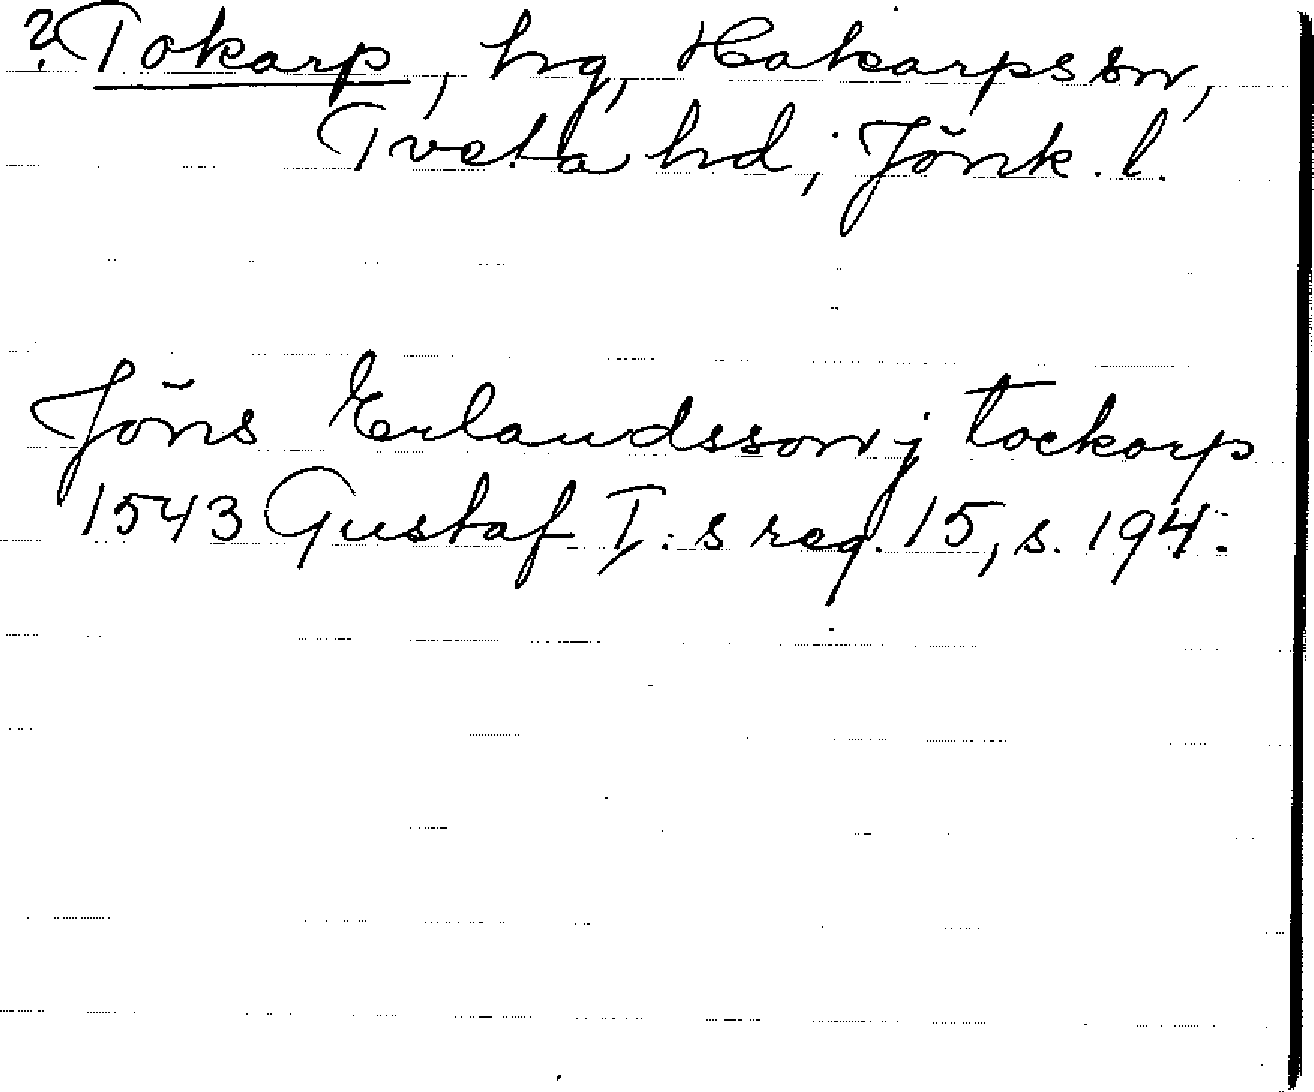 ? Tokarp, hg, Hakarps sn,
Tveta hd, Jönk. l.
Jöns Erlandsson j tockarp
1543 Gustaf I:s reg. 15, s. 194.